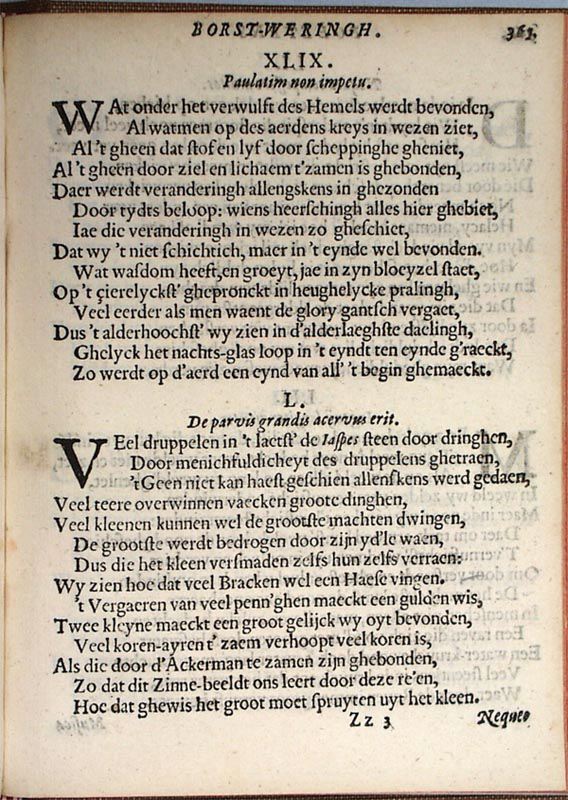 BORST-WERINGH. 363.
XLIX.
Paulatim non impetu.
WAt onder het verwulft des Hemels werdt bevonden,
Al watmen op des aerdens kreys in wezen ziet,
Al 't gheen dat ſtof en lyf door ſcheppinghe gheniet,
Al 't gheen door ziel en lichaem t'zamen is ghebonden,
Daer werdt veranderingh allengskens in ghezonden
Door tydts beloop: wiens heerſchingh alles hier ghebiet,
Iae die veranderingh in wezen zo gheſchiet,
Dat wy 't niet ſchichtich, maer in 't eynde wel bevonden.
Wat waſdom heeft, en groeyt, jae in zyn bloeyzel ſtaet,
Op 't çierelyckſt' ghepronckt in heughelycke pralingh,
Veel eerder als men waent de glory gantſch vergaet,
Dus 't alderhoochſt' wy zien in d'alderlaeghſte daelingh,
Ghelyck het nachts-glas loop in 't eyndt ten eynde g'raeckt,
Zo werdt op d'aerd een eynd van all' 't begin ghemaeckt.
L.
De parvis grandis acervus erit.
VEel druppelen in 't laetſt' de Iaſpes ſteen door dringhen,
Door menichfuldicheyt des druppelens ghetraen,
't Geen niet kan haeſt geſchien allenſkens werd gedaen,
Veel teere overwinnen vaecken groote dinghen,
Veel kleenen kunnen wel de grootſte machten dwingen,
De grootſte werdt bedrogen door zijn yd'le waen,
Dus die het kleen verſmaden zelfs hun zelfs verraen:
Wy zien hoe dat veel Bracken wel een Haeſe vingen.
't Vergaeren van veel penn'ghen maeckt een gulden wis,
Twee kleyne maeckt een groot gelijck wy oyt bevonden,
Veel koren-ayren t' zaem verhoopt veel koren is,
Als die door d'Ackerman te zamen zijn ghebonden,
Zo dat dit Zinne-beeldt ons leert door deze re'en,
Hoe dat ghewis het groot moet ſpruyten uyt het kleen.
Zz 3 Nequeo